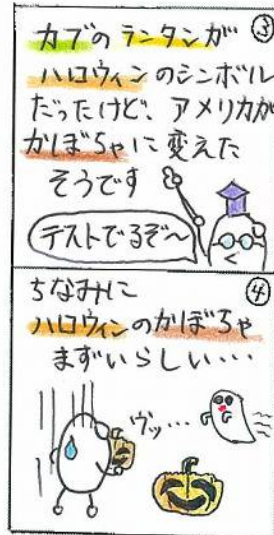 ③
カブのランタンが
ハロウィンのシンボル
だったけど、アメリカが
かぼちゃに変えた
そうです
テストでるぞ〜
④
ちなみに
ハロウィンのかぼちゃ
まずいらしい・・・
ヴッ・・・